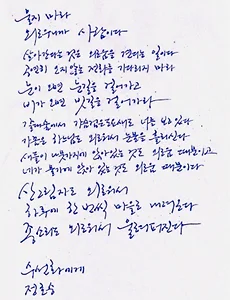 울지 마라
외로우니까 사람이다
살아간다는 것은 외로움을 견디는 일이다
공연히 오지 않는 전화를 기다리지 마라
눈이 오면 눈길을 걸어가고
비가 오면 빗길을 걸어가라
갈대숲에서 가슴검은도요새도 너를 보고 있다
가끔은 하느님도 외로워서 눈물을 흘리신다
새들이 나뭇가지에 앉아 있는 것도 외로움 때문이고
네가 물가에 앉아 있는 것도 외로움 때문이다
산그림자도 외로워서
하루에 한 번씩 마을로 내려온다
종소리도 외로워서 울려퍼진다
수선화에게
정호승